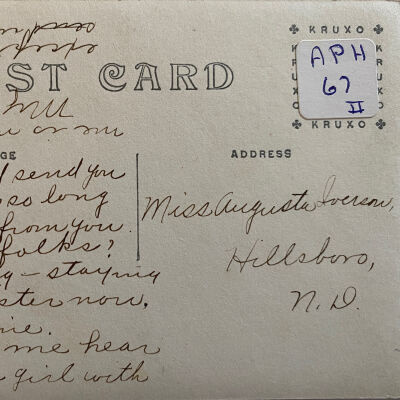 send
ST CARD
KRUXO
APH
67
II
KRUXO
GE
ADDRESS
send you
so long
from you.
folks?
staying
ster now,
me hear
girl with
Miss Augusta Iverson,
Hillsboro,
N. D.